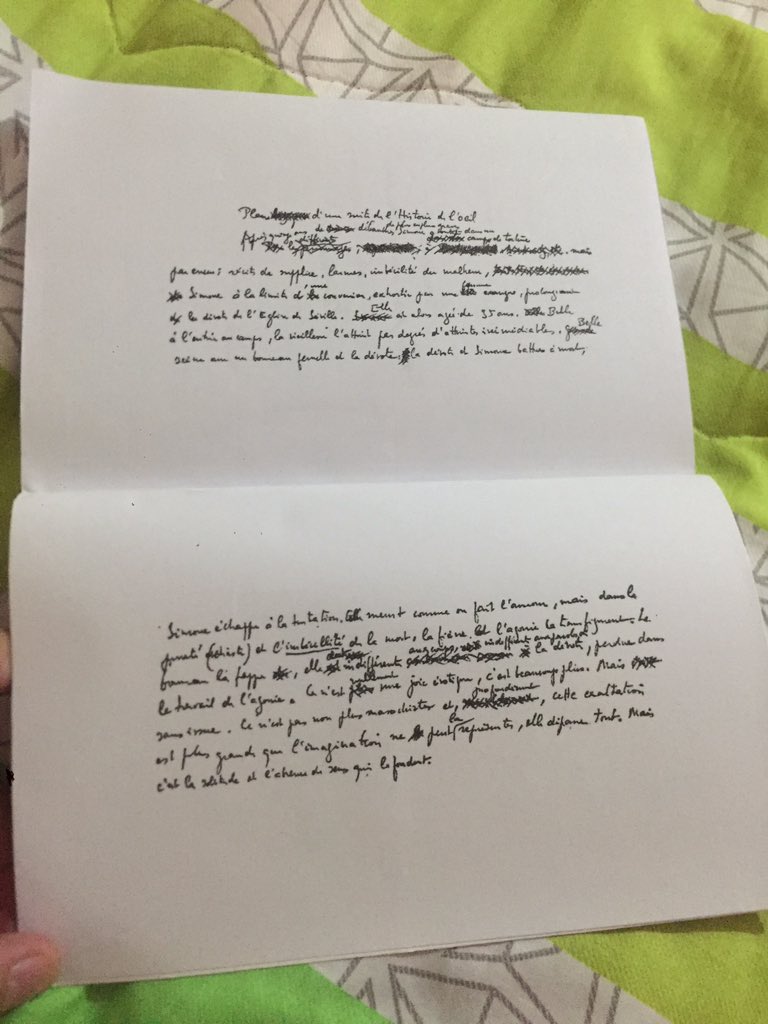 Plan d'une suite de l'Histoire de l'œil
Après quinze ans de débauches de plus en plus graves Simone aboutit dans un
camp de torture. mais
par erreur; récits de supplice, larmes, imbécilité du malheur,
Simone à la limite d'une conversion, exhortée par une femme exsangue, prolongeant
la dévote de l'Eglise de Séville. Elle est alors agée de 35 ans. Belle
à l'entrée au camp, la vieillesse l'atteint par degrés d'atteintes irrémédiables. Belle
scène avec un bourreau femelle et la dévote; la dévote et Simone battues à mort,
Simone échappe à la tentation. Elle meurt comme on fait l'amour, mais dans la
pureté (chaste) et l'imbécillité de la mort: la fièvre et l'agonie la transfigurent. Le
bourreau la frappe, elle est indifférente aux coups, indifférente aux paroles de la dévote, perdue dans
le travail de l'agonie. Ce n'est nullement une joie érotique, c'est beaucoup plus. Mais
sans issue. Ce n'est pas non plus masochiste et, profondément, cette exaltation
est plus grande que l'imagination ne peut la représenter, elle dépasse tout. Mais
c'est la solitude et l'absence de sens qui la fondent.